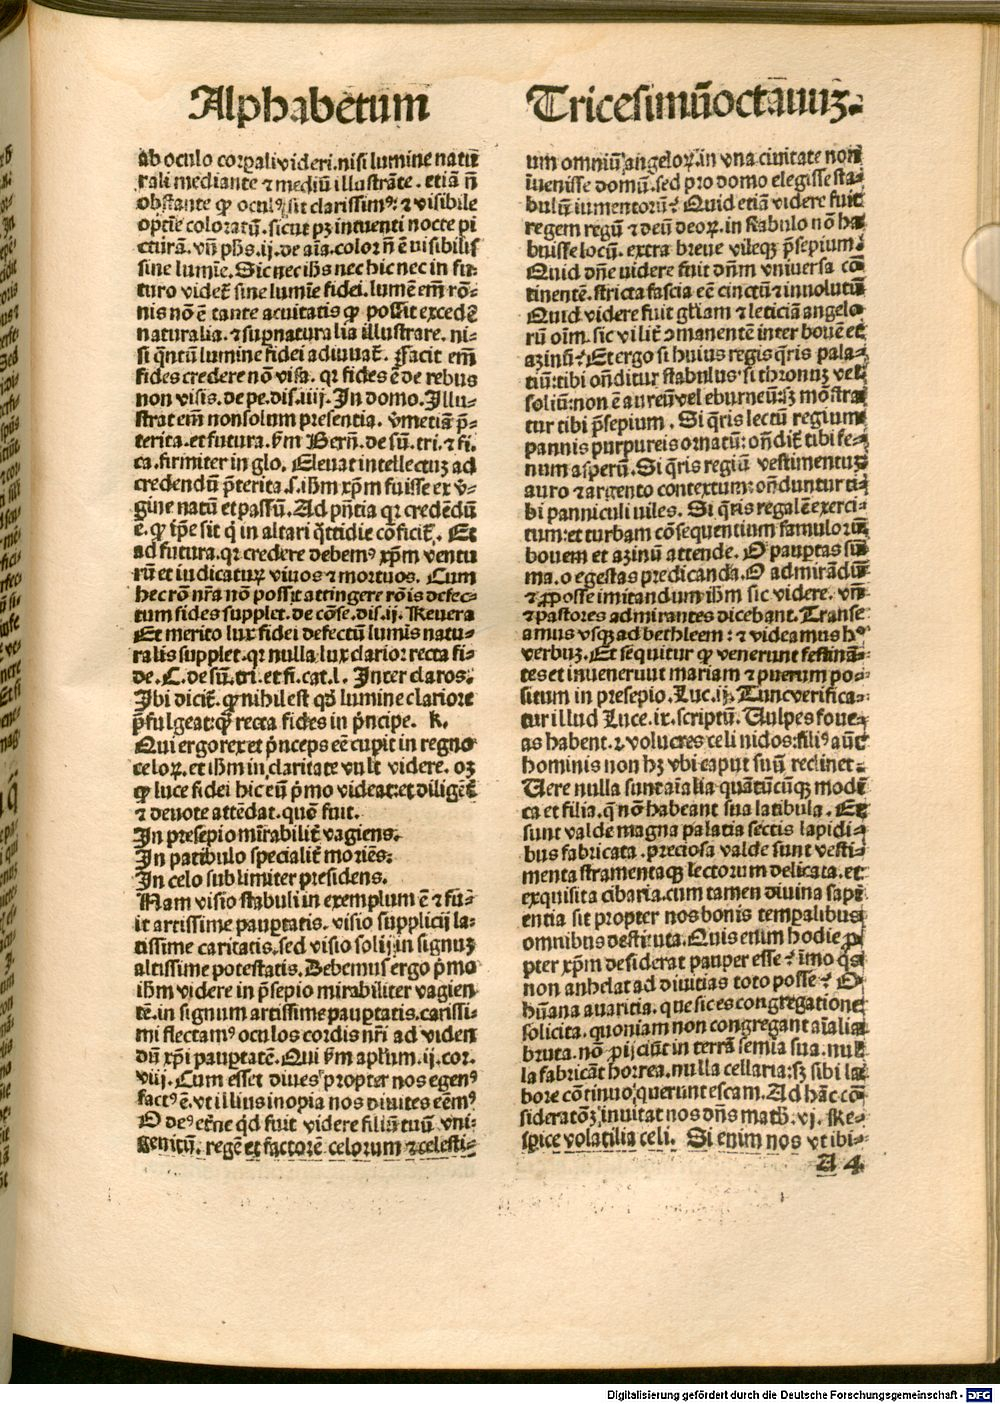 Alphabetum
Tricesimũoctauuꝫ.
ab oculo corꝑali videri. nisi lumine natu
rali mediante ⁊ mediũ illustrãte. etiã ñ
obstante ꝙ oculꝰ sit clarissimꝰ: ⁊ visibile
optĩe coloratũ. sicut pꝫ intuenti nocte pi
cturã. vñ phs. ij. de aĩa. color ñ ẽ uisibilis
sine lumĩe. Sic nec ihs nec hic nec in fu-
turo videt̃ sine lumĩe fidei. lumẽ em̃ rõ-
nis nõ ẽ tante acuitatis ꝙ possit excedẽ
naturalia. ⁊ suꝑnaturalia illustrare. ni-
si q̃ntũ lumine fidei adiuuat̃. Facit em̃
fides credere nõ visa. qꝛ fides ẽ de rebus
non visis. de pe. dis. iiij. In domo. Illu-
strat em̃ nonsolum presentia. vmetiã p̃-
terita. et futura. ẜm Berñ. de sũ. tri. ⁊ fi.
ca. firmiter in glo. Eleuat intellectuꝫ ad
credendũ p̃terita. s. ihm xp̃m fuisse ex v̾-
gine natũ et passũ. Ad pñtia qꝛ credẽdũ
e. ꝙ tp̃e sit q̃ in altari q̃ttidie cõficit̃. Et
ad futura. qꝛ credere debemꝰ xp̃m ventu
rũ et iudicaturꝝ viuos ⁊ mortuos. Cum
hec rõ nr̃a nõ possit attingere rõis defec-
tum fides supplet. de cõse. dis. ij. Reuera
Et merito lux fidei defectũ lumis natu-
ralis supplet. qꝛ nulla lux clarior recta fi-
de. C. de sũ. tri. et fi. cat. l. Inter claros.
Ibi dicit̃. ꝙ nihil est qd̾ lumine clariore
p̃fulgeat: ꝙ̃ recta fides in p̃ncipe. R.
Qui ergo rex et p̃nceps eẽ cupit in regno
celoꝝ. et ihm in claritate vult videre. oꝫ
ꝙ luce fidei hic eũ p̃mo videat: et diligẽt̃
⁊ deuote attẽdat. quõ fuit.
In presepio mĩrabilit̃ vagiens.
In patibulo specialit̃ moriẽs.
In celo sublimiter presidens.
Nam visio stabuli in exemplum ẽ ⁊ fu-
it artissime pauꝑtatis. visio supplicij la-
tissime caritatis. sed visio solij in signuꝫ
altissime potestatis. Debemus ergo p̃mo
ihm videre in p̃sepio mirabiliter vagien
tẽ. in signum artissime pauꝑtatis. carissi-
mi flectamꝰ oculos cordis nr̃i ad viden
dũ xp̃i pauꝑtatẽ. Qui ẜm apl'um. ij. cor.
viij. Cum esset diues propter nos egenꝰ
factꝰ ẽ. vt illius inopia nos diuites eẽmꝰ
O deꝰ eterne q̃d fuit videre filiũ tuũ vni-
genitũ. regẽ et factorẽ celorum ⁊ celesti-
um omniũ angeloꝝ. in vna ciuitate non
ĩuenisse domũ. sed pro domo elegisse sta-
bulũ iumentorũ? Quid etiã videre fuit
regem regũ ⁊ deũ deoꝝ. in stabulo nõ ha
buisse locũ. extra breue vileqꝫ p̃sepium?
Quid dñe videre fuit dñm vniuersa cõ
tinentẽ. stricta fascia eẽ cinctũ ⁊ inuolutũ
Quid videre fuit gl'iam ⁊ leticiã angelo
rũ oĩm. sic vilit̃ ꝯmanentẽ inter bouẽ et
azinũ? Et ergo si huius regis q̃ris pala-
tiũ: tibi oñditur stabulus. si thronuꝫ vel
soliũ: non ẽ aureũ vel eburneũ: sꝫ mõstra
tur tibi p̃sepium. Si q̃ris lectũ regium
pannis purpureis ornatũ: oñdit̃ tibi fe-
num asperũ. Si q̃ris regiũ vestimentuꝫ
auro ⁊ argento contextum: oñduntur ti-
bi panniculi uiles. Si q̃ris regalẽ exerci-
tum: et turbam cõsequentium famulorũ
bouem et azinũ attende. O pauꝑtas sũ-
ma. o egestas predicanda. O admirãdũ
⁊ ꝓposse imitandum ihm sic videre. vñ
⁊ pastores admirantes dicebant. Transe
amus vsqꝫ ad bethleem: ⁊ videamus hꝰ
verbuꝫ. Et sequitur ꝙ venerunt festinã-
tes et inuenerunt mariam ⁊ puerum po-
situm in presepio. Luc. ij. Tunc verifica-
tur illud Luce. ix. scriptũ. Vulpes foue-
as habent. ⁊ volucres celi nidos: filiꝰ aũt
hominis non hꝫ vbi caput suũ reclinet.
Uere nulla sunt aĩalia quãtũcũqꝫ modi
ca et filia. q̃ nõ habeant sua latibula. Et
sunt valde magna palatia sectis lapidi-
bus fabricata. preciosa valde sunt vesti-
menta stramentaqꝫ lectorum delicata. et
exquisita cibaria. cum tamen diuina sapi
entia sit propter nos bonis temꝑalibus
omnibus destituta. Quis enim hodie ꝓ
pter xp̃m desiderat pauper esse? ĩmo q̃s
non anhelat ad diuitias toto posse? O
hũana auaritia. que sic es congregatione
solicita. quoniam non congregant aĩalia
bruta. nõ ꝓijciũt in terrã semĩa sua. nul
la fabricãt horrea. nulla cellaria: sꝫ sibi la
bore cõtinuo querunt escam. Ad hãc cõ
sideratõꝫ inuitat nos dñs math. vj. Re-
spice volatilia celi. Si enim nos vt ibi-
A 4
Digitalisierung gefördert durch die Deutsche Forschungsgemeinschaft - DFG